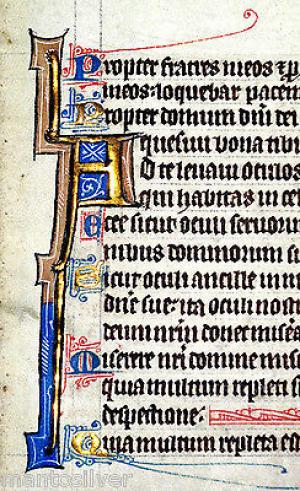 Propter fratres meos & p
meos: loquebar pacem
Propter domum dni dei
quesiui bona tibi
Ad te leuaui oculos
qui habitas in ce
Ecce sicut oculi seruorum
nibus dominorum s
Sicut oculi ancille in m
dne sue: ita oculi nost
deum nrm donec misere
Miserere nri domine mis
quia multum repleti s
despectione:
Quia multum repleta est
mantosilver